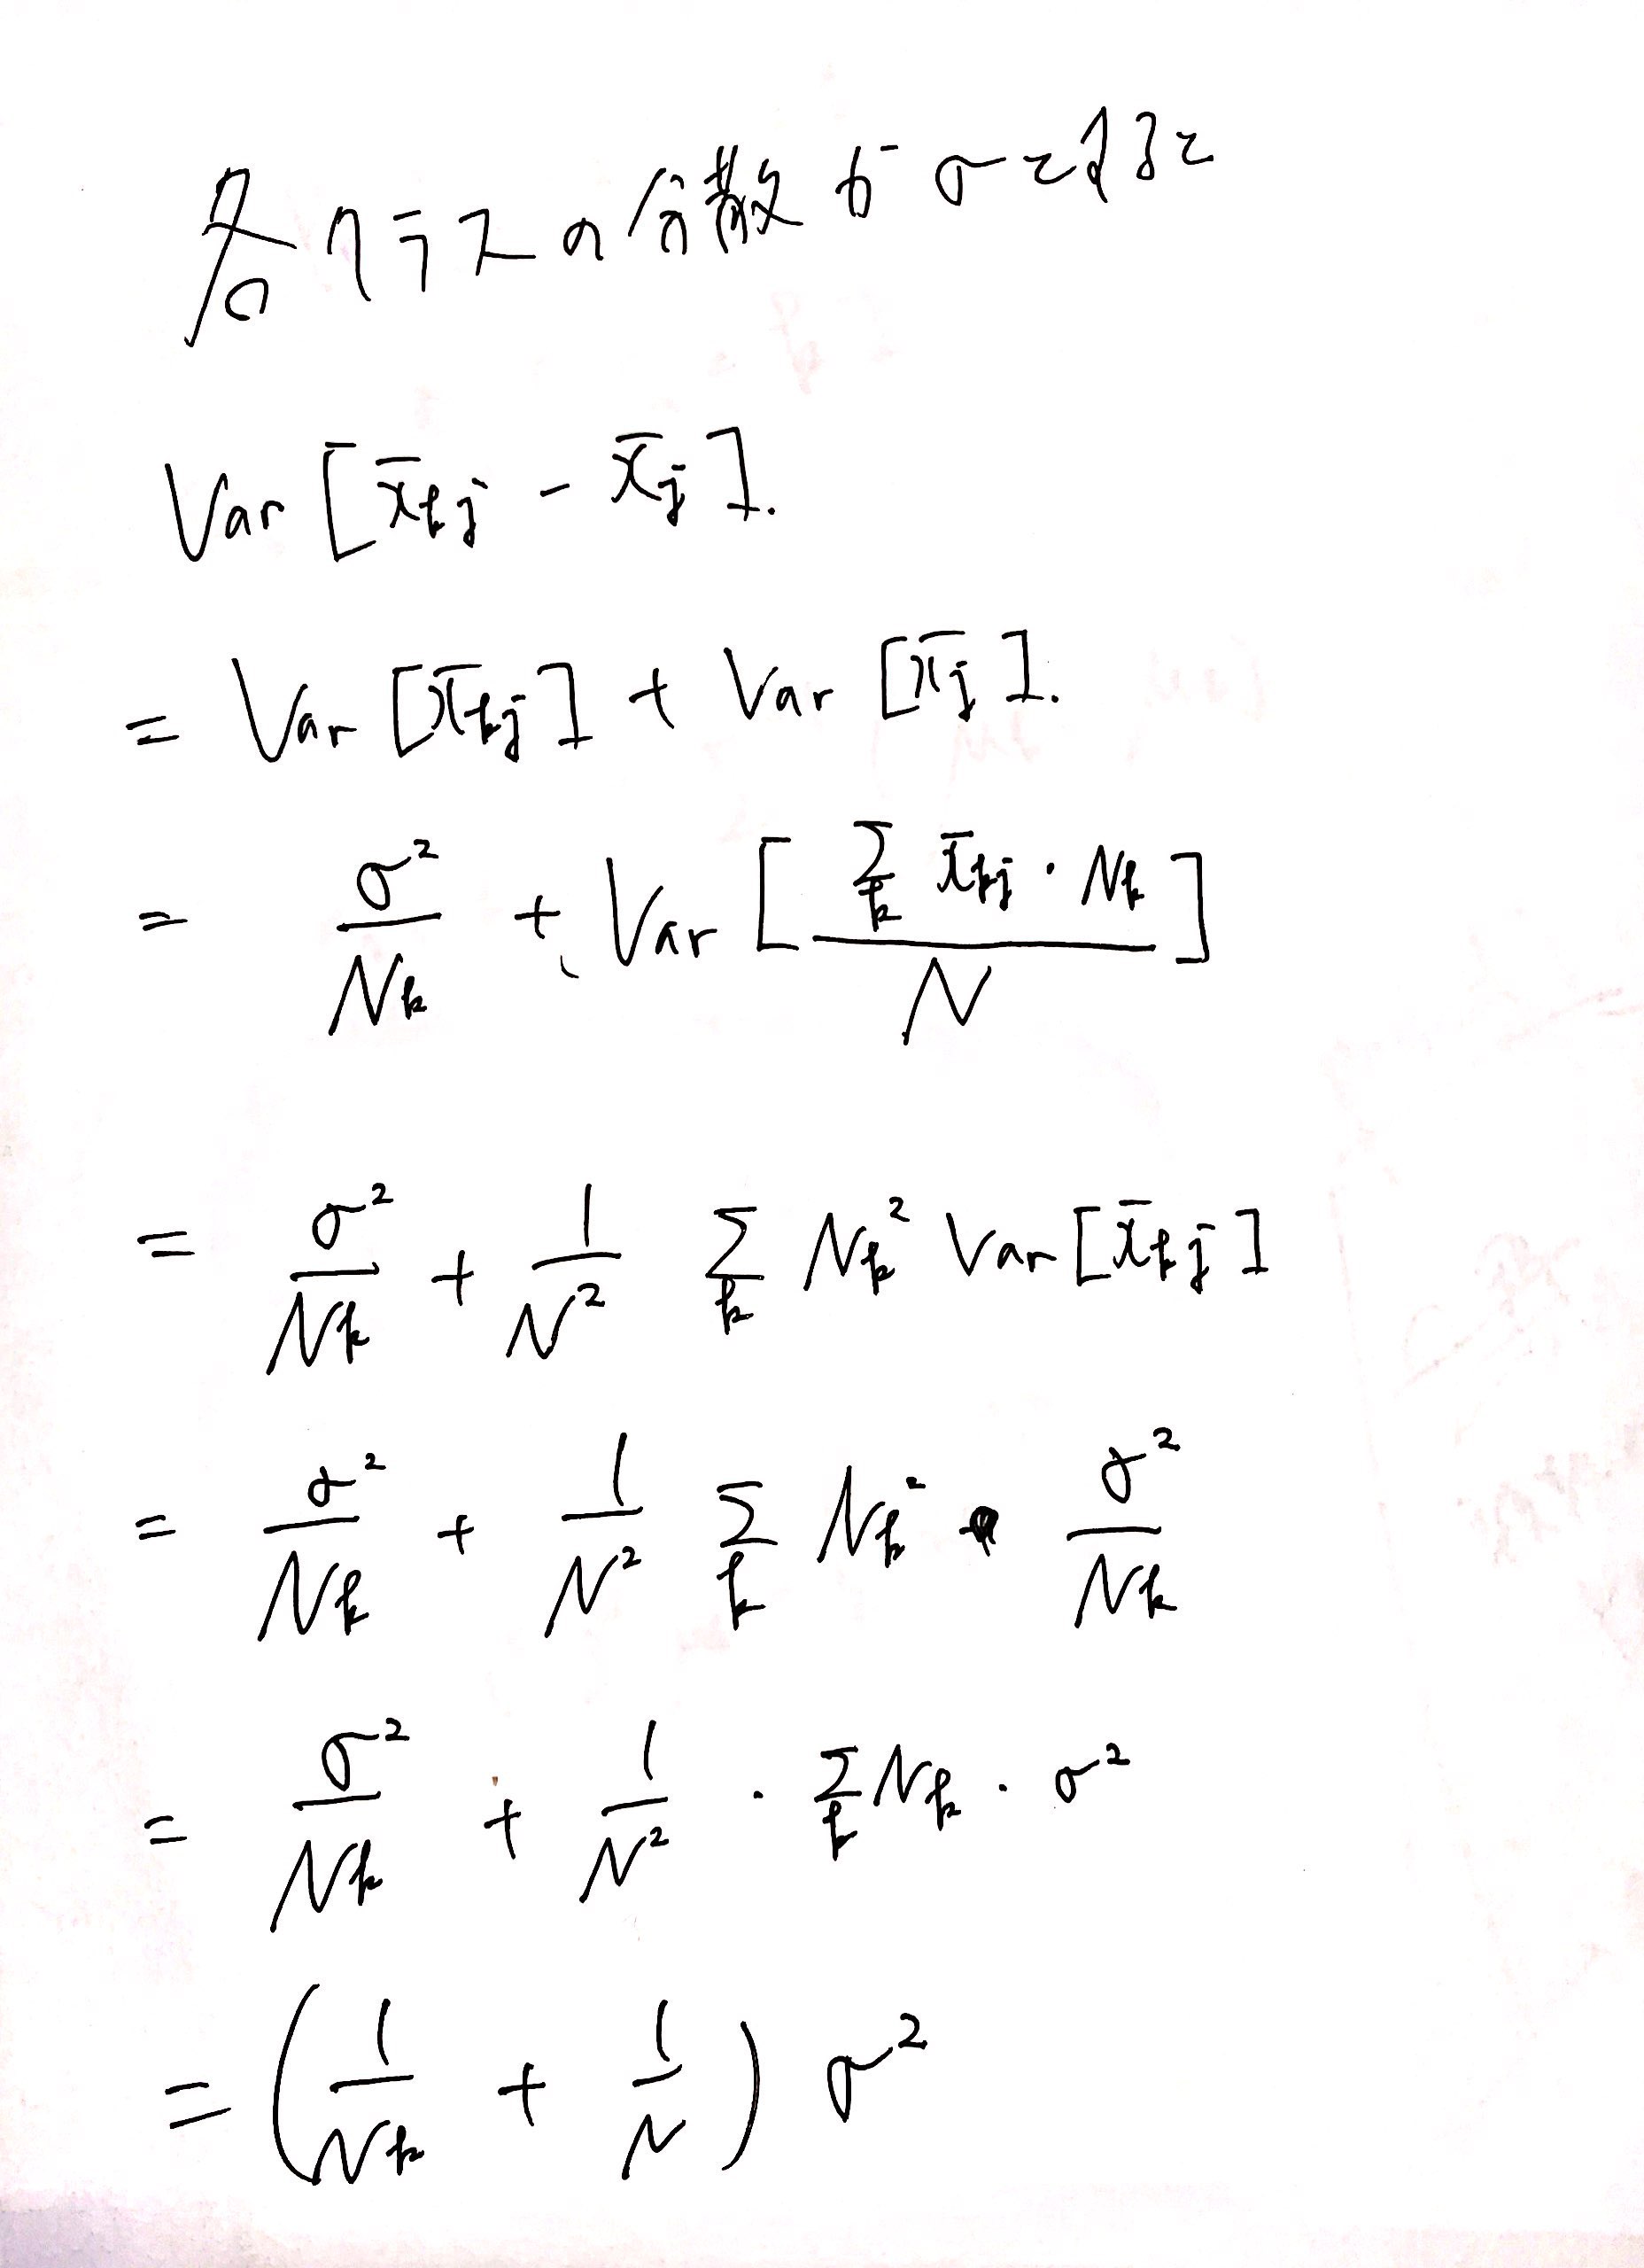 各クラスの分散がσとすると
Var [x̄kj - x̄j].
= Var [x̄kj] + Var [x̄j].
= σ²/Nk + Var [Σk x̄kj · Nk / N]
= σ²/Nk + 1/N² Σk Nk² Var [x̄kj]
= σ²/Nk + 1/N² Σk Nk² · σ²/Nk
= σ²/Nk + 1/N² · Σk Nk · σ²
= (1/Nk + 1/N) σ²